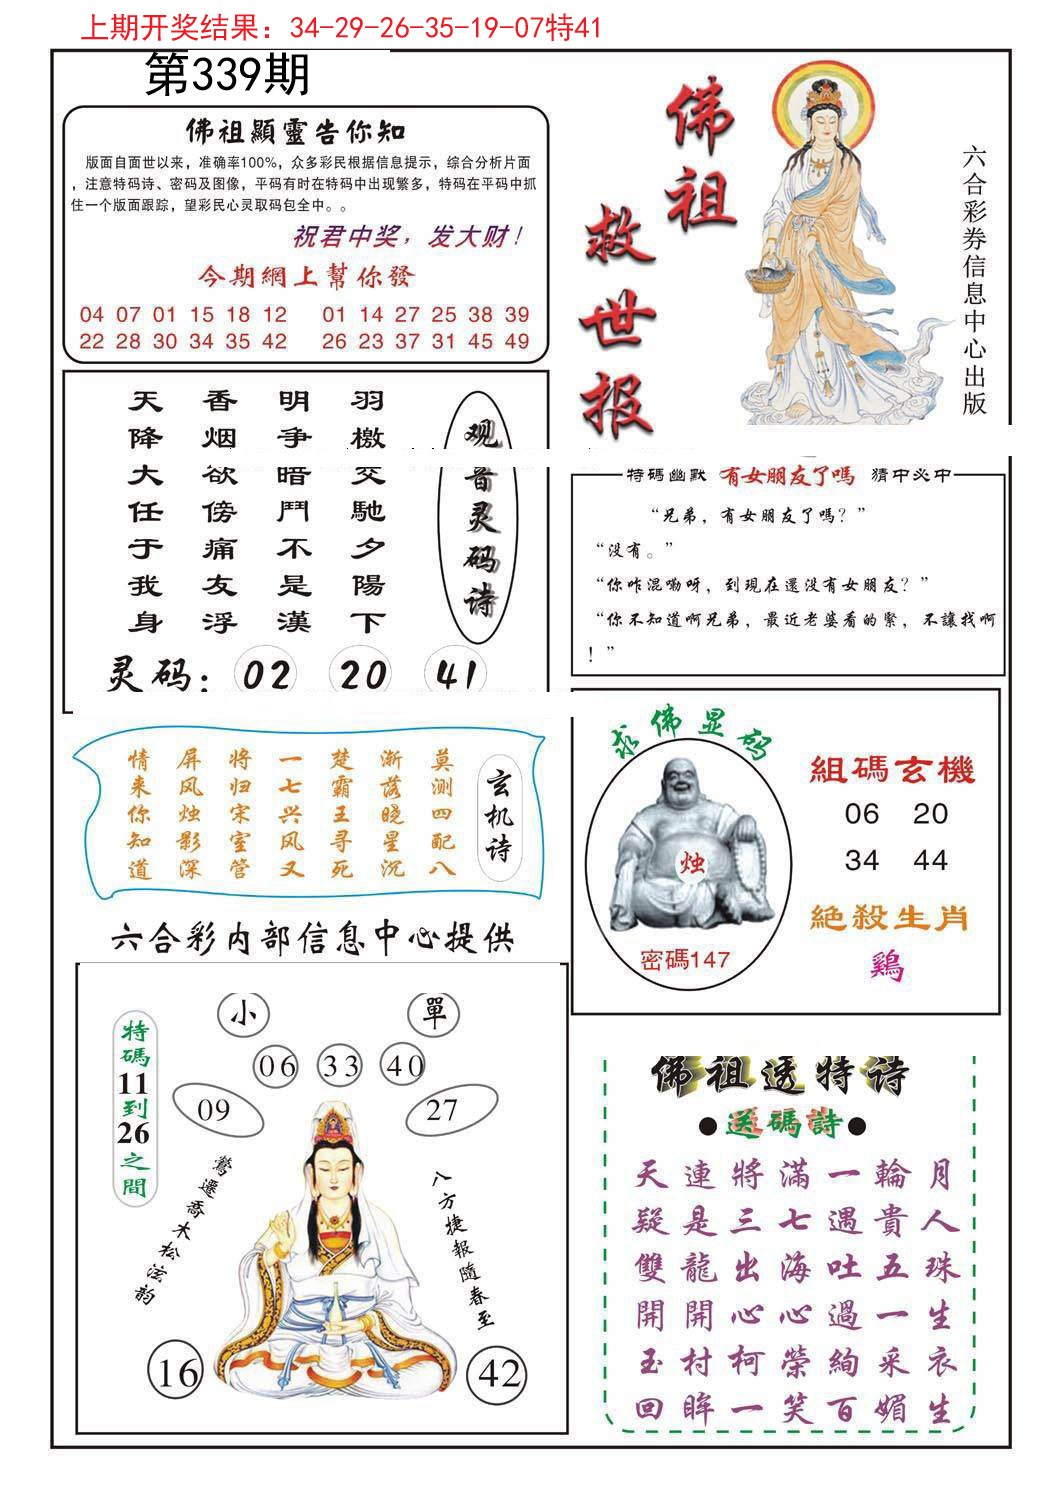 上期开奖结果：34-29-26-35-19-07特41
第339期
佛祖顯靈告你知
版面自面世以来，准确率100%，众多彩民根据信息提示，综合分析片面
，注意特码诗、密码及图像，平码有时在特码中出现繁多，特码在平码中抓
住一个版面跟踪，望彩民心灵取码包全中。。
祝君中奖，发大财！
今期網上幫你發
04 07 01 15 18 12 01 14 27 25 38 39
22 28 30 34 35 42 26 23 37 31 45 49
佛祖
救世报
六合彩券信息中心出版
观音灵码诗
羽檄交馳夕陽下
明争暗鬥不是漢
香烟欲傍痛友浮
天降大任于我身
灵码：02 20 41
特碼幽默 有女朋友了嗎 猜中必中
“兄弟，有女朋友了嗎？”
“没有。”
“你咋混嘞呀，到現在還没有女朋友？”
“你不知道啊兄弟，最近老婆看的緊，不讓找啊
！”
玄机诗
莫测四配八
渐落晓星沉
楚霸王寻死
一七兴风又
将归宋室管
屏风烛影深
情来你知道
求佛显码
烛
密碼147
組碼玄機
06 20
34 44
絕殺生肖
鷄
六合彩内部信息中心提供
特碼11到26之間
小 單
06 33 40
09 27
鶯遷喬木松泫韵
八方捷報隨春至
16 42
佛祖透特诗
●送碼詩●
天連將滿一輪月
疑是三七遇貴人
雙龍出海吐五珠
開開心心過一生
玉村柯榮絢采衣
回眸一笑百媚生